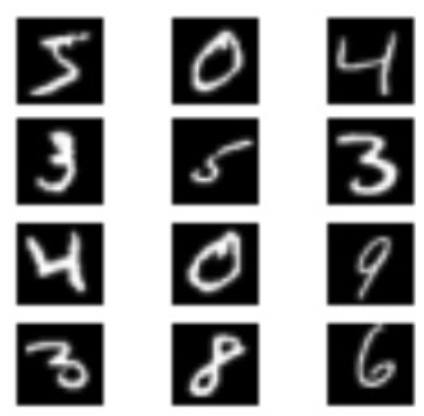 5 0 4
3 5 3
4 0 9
3 8 6